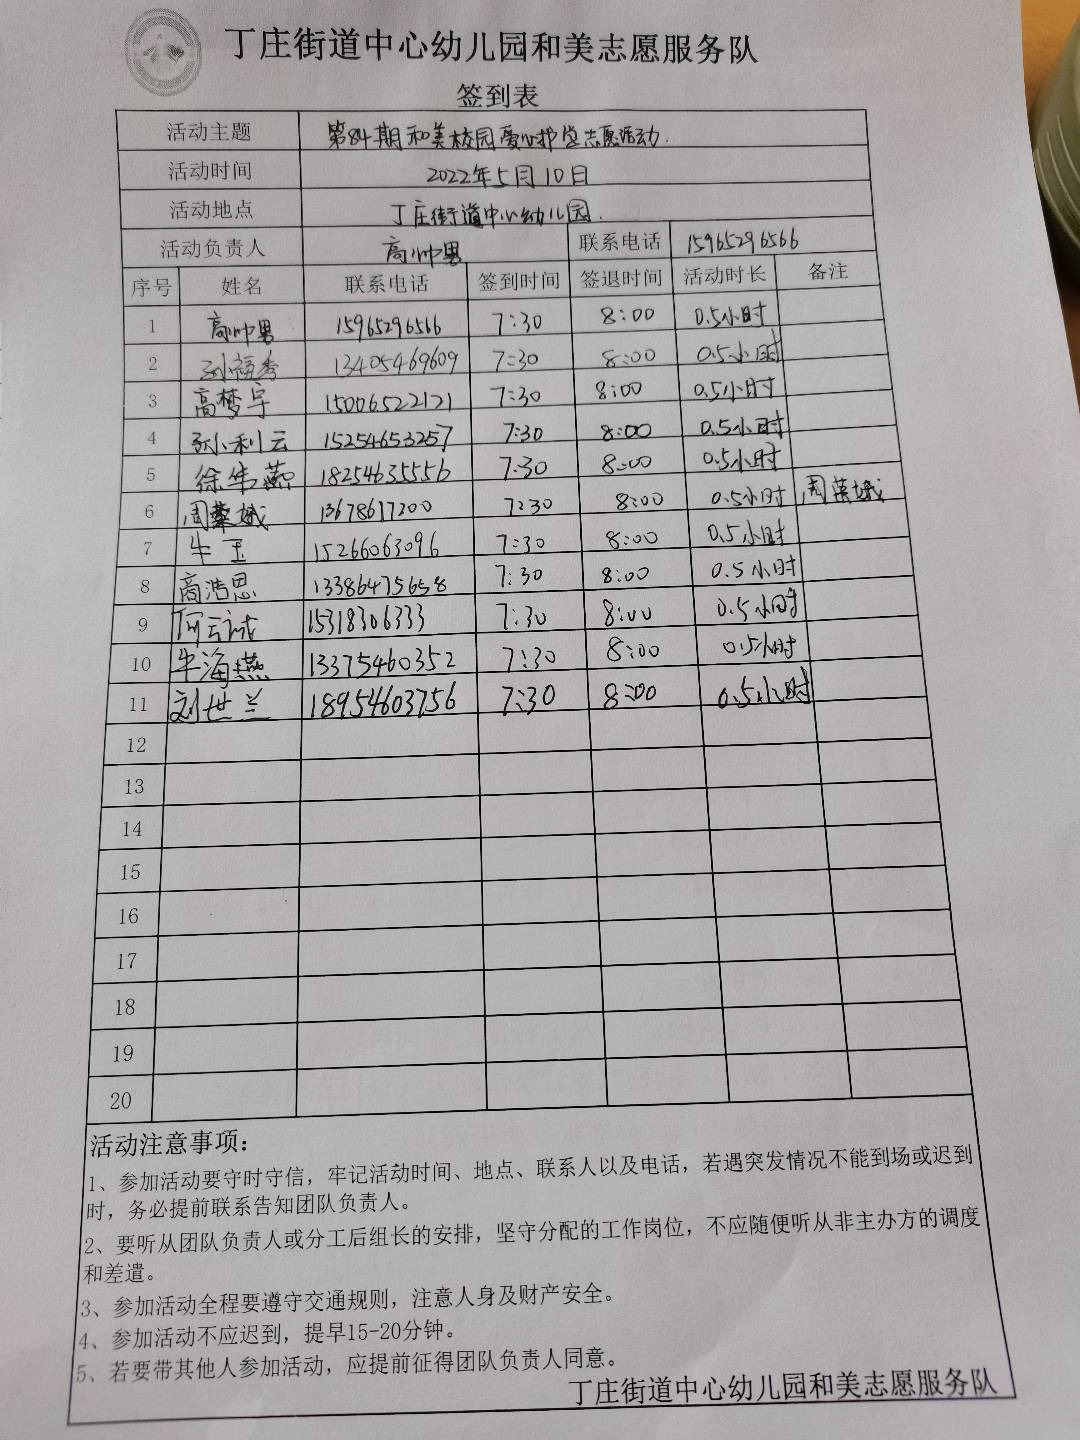 丁庄街道中心幼儿园和美志愿服务队
签到表
活动主题 第84期和美校园爱心护学志愿活动.
活动时间 2022年5月10日
活动地点 丁庄街道中心幼儿园.
活动负责人 高帅男 联系电话 15965296566
序号 姓名 联系电话 签到时间 签退时间 活动时长 备注
1 高帅男 15965296566 7:30 8:00 0.5小时
2 孙福秀 13405469609 7:30 8:00 0.5小时
3 高梦宇 15006522121 7:30 8:00 0.5小时
4 张小利云 15254653257 7:30 8:00 0.5小时
5 徐华燕 18254635556 7:30 8:00 0.5小时
6 周荣娥 13678617200 7:30 8:00 0.5小时 周荣娥
7 牛玉 15266063096 7:30 8:00 0.5小时
8 商浩思 13386475658 7:30 8:00 0.5小时
9 何云诚 15318306333 7:30 8:00 0.5小时
10 牛海燕 13375460352 7:30 8:00 0.5小时
11 刘世兰 18954603756 7:30 8:00 0.5小时
12
13
14
15
16
17
18
19
20
活动注意事项：
1、参加活动要守时守信，牢记活动时间、地点、联系人以及电话，若遇突发情况不能到场或迟到
时，务必提前联系告知团队负责人。
2、要听从团队负责人或分工后组长的安排，坚守分配的工作岗位，不应随便听从非主办方的调度
和差遣。
3、参加活动全程要遵守交通规则，注意人身及财产安全。
4、参加活动不应迟到，提早15-20分钟。
5、若要带其他人参加活动，应提前征得团队负责人同意。
丁庄街道中心幼儿园和美志愿服务队